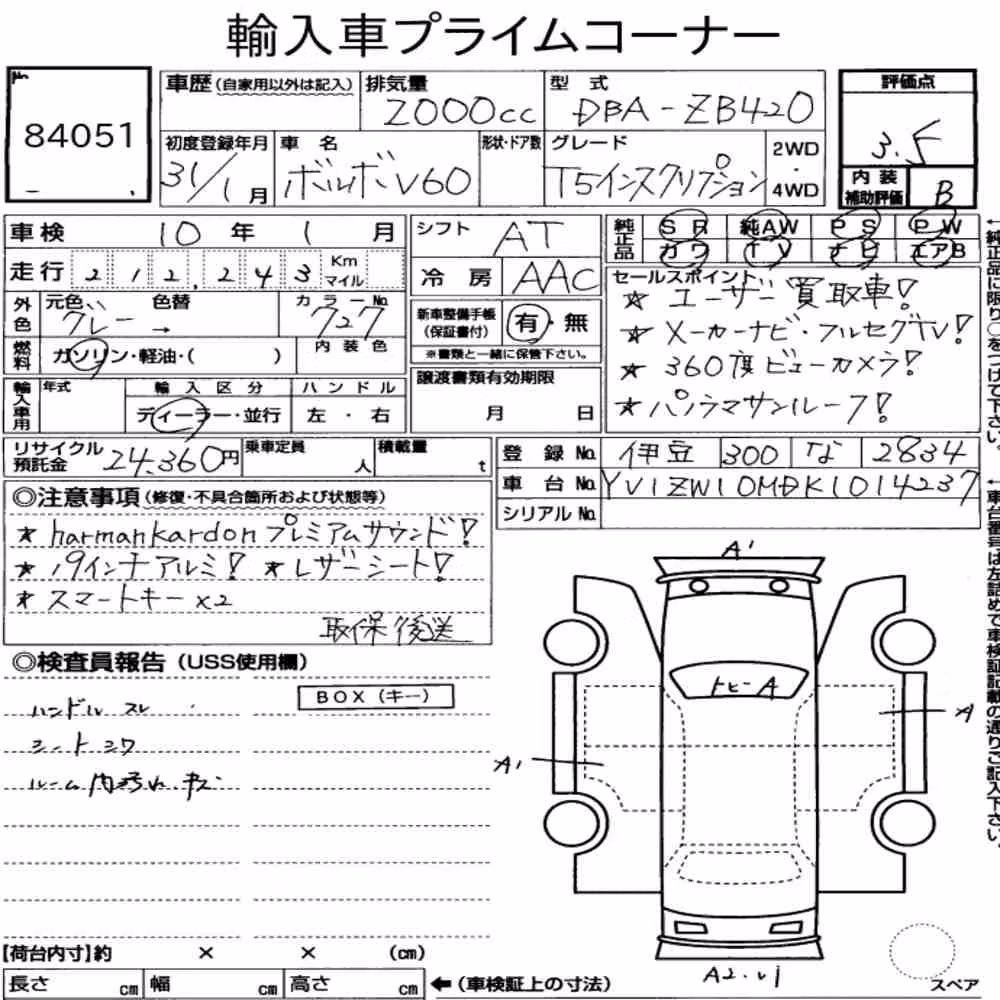 輸入車プライムコーナー
No.
84051
車歴(自家用以外は記入) 排気量 2000cc 型式 DBA-ZB420
初度登録年月 31/1月 車名 ボルボV60 形状・ドア数 グレード T5インスクリプション 2WD・4WD
評価点 3.5
内装補助評価 B
車検 10年 1月
走行 212,243 Km マイル
外色 元色 グレー → 色替 カラーNo. 727
燃料 ガソリン・軽油・( ) 内装色
輸入車用 年式 輸入区分 ディーラー・並行 ハンドル 左・右
シフト AT
冷房 AAC
新車整備手帳(保証書付) 有・無
※書類と一緒に保管下さい。
譲渡書類有効期限
月 日
純正品 SR 純AW PS PW
カワ TV ナビ エアB
セールスポイント
★ユーザー買取車!
★メーカーナビ・フルセグTV!
★360度ビューカメラ!
★パノラマサンルーフ!
←純正品に限り○をつけて下さい。
リサイクル預託金 24,360円 乗車定員 人 積載量 t
登録No. 伊豆 300 な 2834
車台No. YV1ZW10MDK1014237
シリアルNo.
←車台番号は左詰めで車検証記載の通りご記入下さい。
◎注意事項(修復・不具合箇所および状態等)
★harmankardonプレミアムサウンド!
★19インチアルミ! ★レザーシート!
★スマートキー×2
取保後送
◎検査員報告(USS使用欄)
BOX(キー)
ハンドル スレ
シート シワ
ルーム内汚れ.キズ
A'
トビーA
A
A1
A2.U1
スペア
【荷台内寸】約 × × (cm)
長さ cm 幅 cm 高さ cm ←(車検証上の寸法)